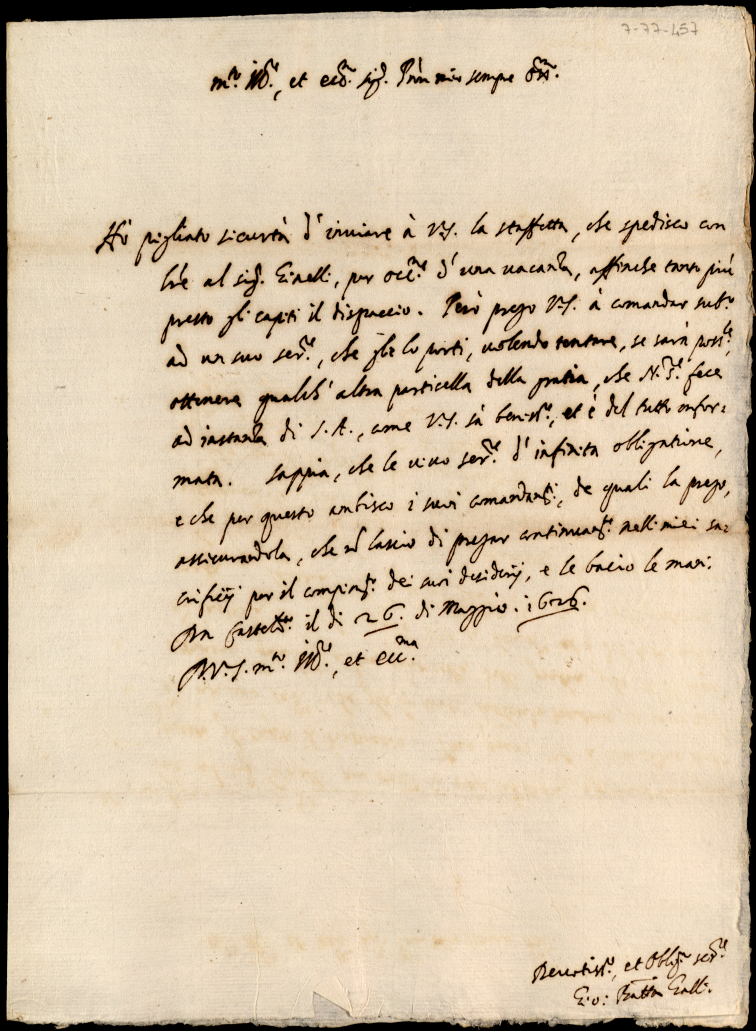 7-77-457
m.to Ill.re, et ecc.mo sig.r P.rōn mio sempre oss.mo
Hò pigliato sicurtà d'inviare à V.S. la staffetta, che spedisco con
l're al sig.r Ginelli, per occ.ne d'una vacanza, affinche tanto più
presto gli capiti il dispaccio. Però prego V.S. à comandar sub.o
ad un suo ser.re, che glie lo porti, volendo tentare, se sarà poss.le,
ottenere qualch' altra particella della gratia, che N. S.re fece
ad instanza di S.A., come V.S. sà beniss.o, et è del tutto infor=
mata. Sappia, che le vivo ser.re d'infinita obligatione,
e che per questo ambisco i suoi comandam.ti, de quali la prego,
assicurandola, che nō lascio di pregar continuam.te nelli miei sa=
crificij per il compim.to dei suoi desiderij, e le bacio le mani.
Da Castelb.co il di 26. di Maggio. 1626.
D. V. S. m.to Ill.re, et ecc.ma
Devotiss.o, et Oblig.o ser.re
Gio: Batta Galli.